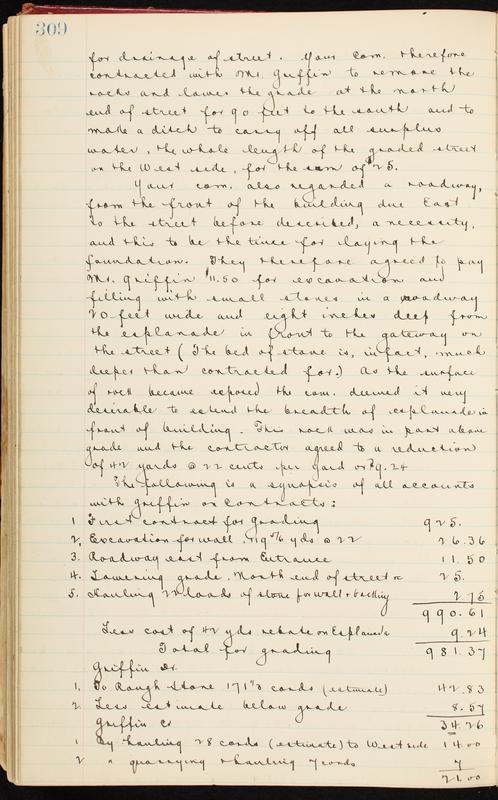 309
for drainage of street. Your Com. therefore
contracted with Mr. Griffin to remove the
rocks and lower the grade at the north
end of street for 90 feet to the south and to
make a ditch to carry off all surplus
water, the whole length of the graded street
on the West side, for the sum of $25.
Your com. also regarded a roadway,
from the front of the building due East
to the street before described, a necessity,
and this to be the time for laying the
foundation. They therefore agreed to pay
Mr. Griffin $11.50 for excavation and
filling with small stones in a roadway
20 feet wide and eight inches deep from
the esplanade in front to the gateway on
the street (The bed of stone is, in fact, much
deeper than contracted for.) As the surface
of rock became exposed the com. deemed it very
desirable to extend the breadth of esplanade in
front of building. This rock was in part above
grade and the contractor agreed to a reduction
of 42 yards @ 22 cents per yard or $9.24
The following is a synopsis of all accounts
with Griffin on Contracts:
1. First contract for grading 925.
2. Excavation for wall. yds @ 22 26.36
3. Roadway east from Entrance 11.50
4. Lowering grade. North end of street 25.
5. Hauling 22 loads of stone for wall & backing 2.75
990.61
Less cost of 42 yds rebate on Esplanade 9.24
Total for grading 981.37
Griffin Dr.
1. To Rough Stone cords (estimate) 42.83
2. Less estimate below grade 8.57
34.26
Griffin Cr
1 By hauling 28 cords (estimate) to West side 14.00
2 " quarrying & hauling 7 cords 7
21.00